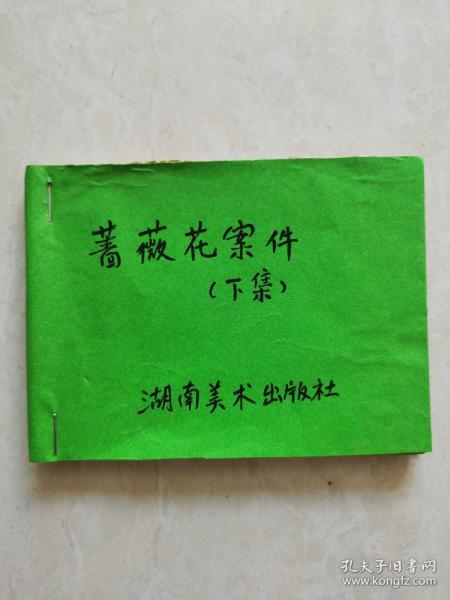 蔷薇花案件
（下集）
湖南美术出版社
孔夫子旧书网
www.kongfz.com